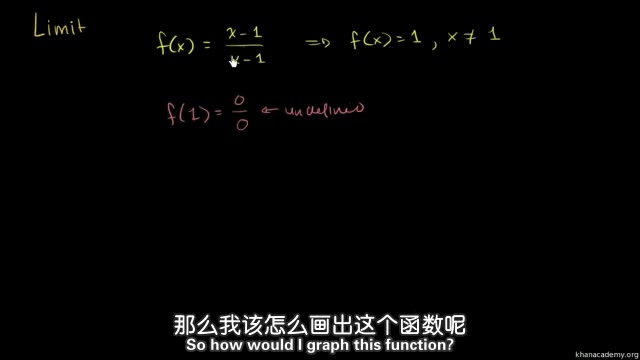 Limit
f(x) = x-1 / x-1 ⇒ f(x) = 1 , x ≠ 1
f(1) = 0 / 0 ← undefined
那么我该怎么画出这个函数呢
So how would I graph this function?
khanacademy.org